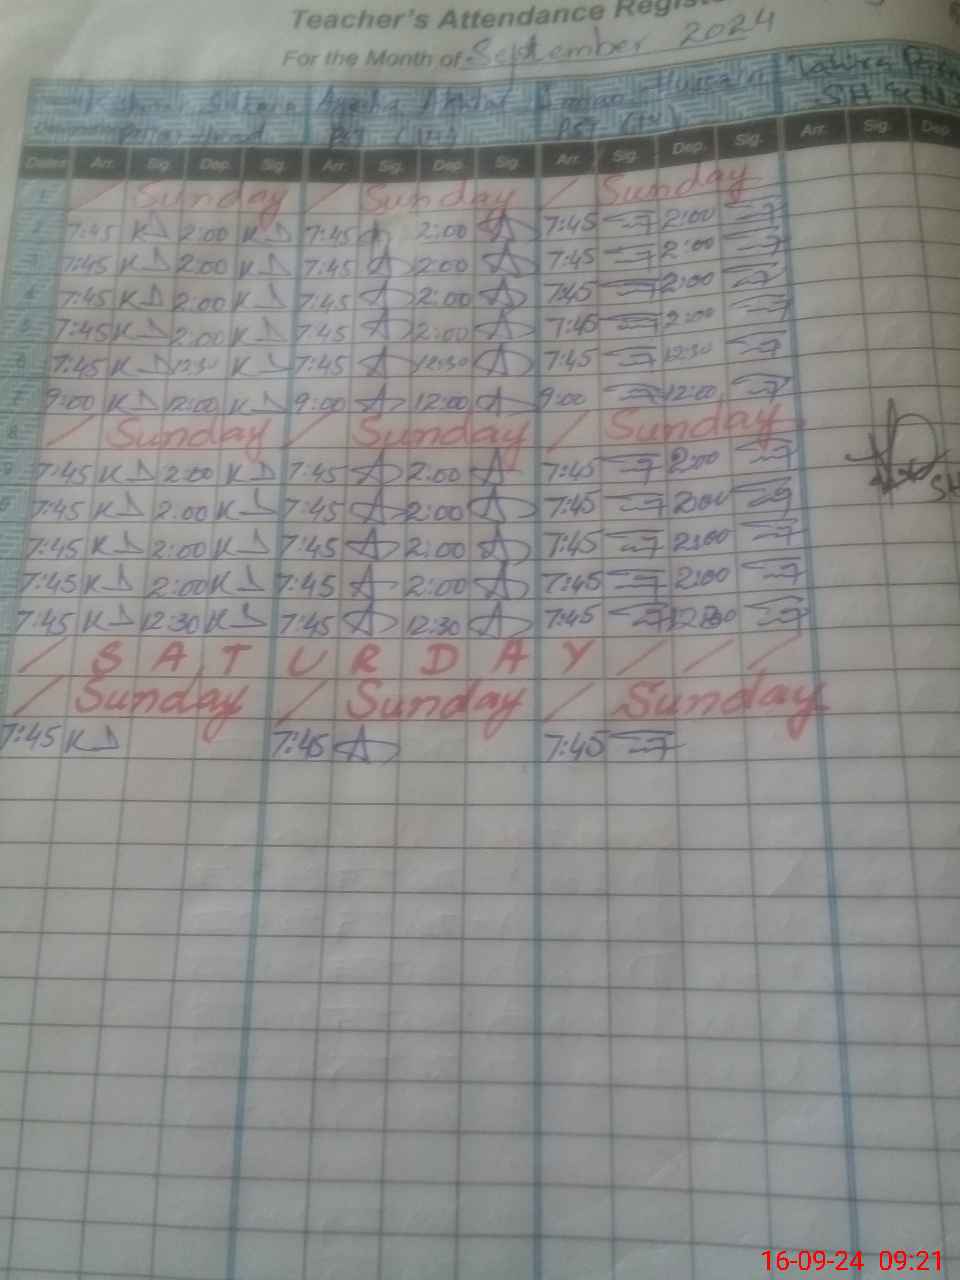 Teacher's Attendance Regist
For the Month of September 2024
Ayesha
PST (14) PST (14) SH
Dates Arr. Sig. Dep. Sig. Arr. Sig. Dep. Sig. Arr. Sig. Dep. Sig. Arr. Sig. Dep.
1 / Sunday / Sunday / Sunday
2 7:45 KS 2:00 KS 7:45 A 2:00 A 7:45 2:00
3 7:45 KS 2:00 KS 7:45 A 2:00 A 7:45 2:00
4 7:45 KS 2:00 KS 7:45 A 2:00 A 7:45 2:00
5 7:45 KS 2:00 KS 7:45 A 2:00 A 7:45 2:00
6 7:45 KS 12:30 KS 7:45 A 12:30 A 7:45 12:30
7 9:00 KS 12:00 KS 9:00 A 12:00 A 9:00 12:00
8 / Sunday / Sunday / Sunday
7:45 KS 2:00 KS 7:45 A 2:00 A 7:45 2:00
7:45 KS 2:00 KS 7:45 A 2:00 A 7:45 2:00 SH
7:45 KS 2:00 KS 7:45 A 2:00 A 7:45 2:00
7:45 KS 2:00 KS 7:45 A 2:00 A 7:45 2:00
7:45 KS 12:30 KS 7:45 A 12:30 A 7:45 12:30
/ S A T U R D A Y / / /
/ Sunday / Sunday / Sunday
7:45 KS 7:45 A 7:45
16-09-24 09:21